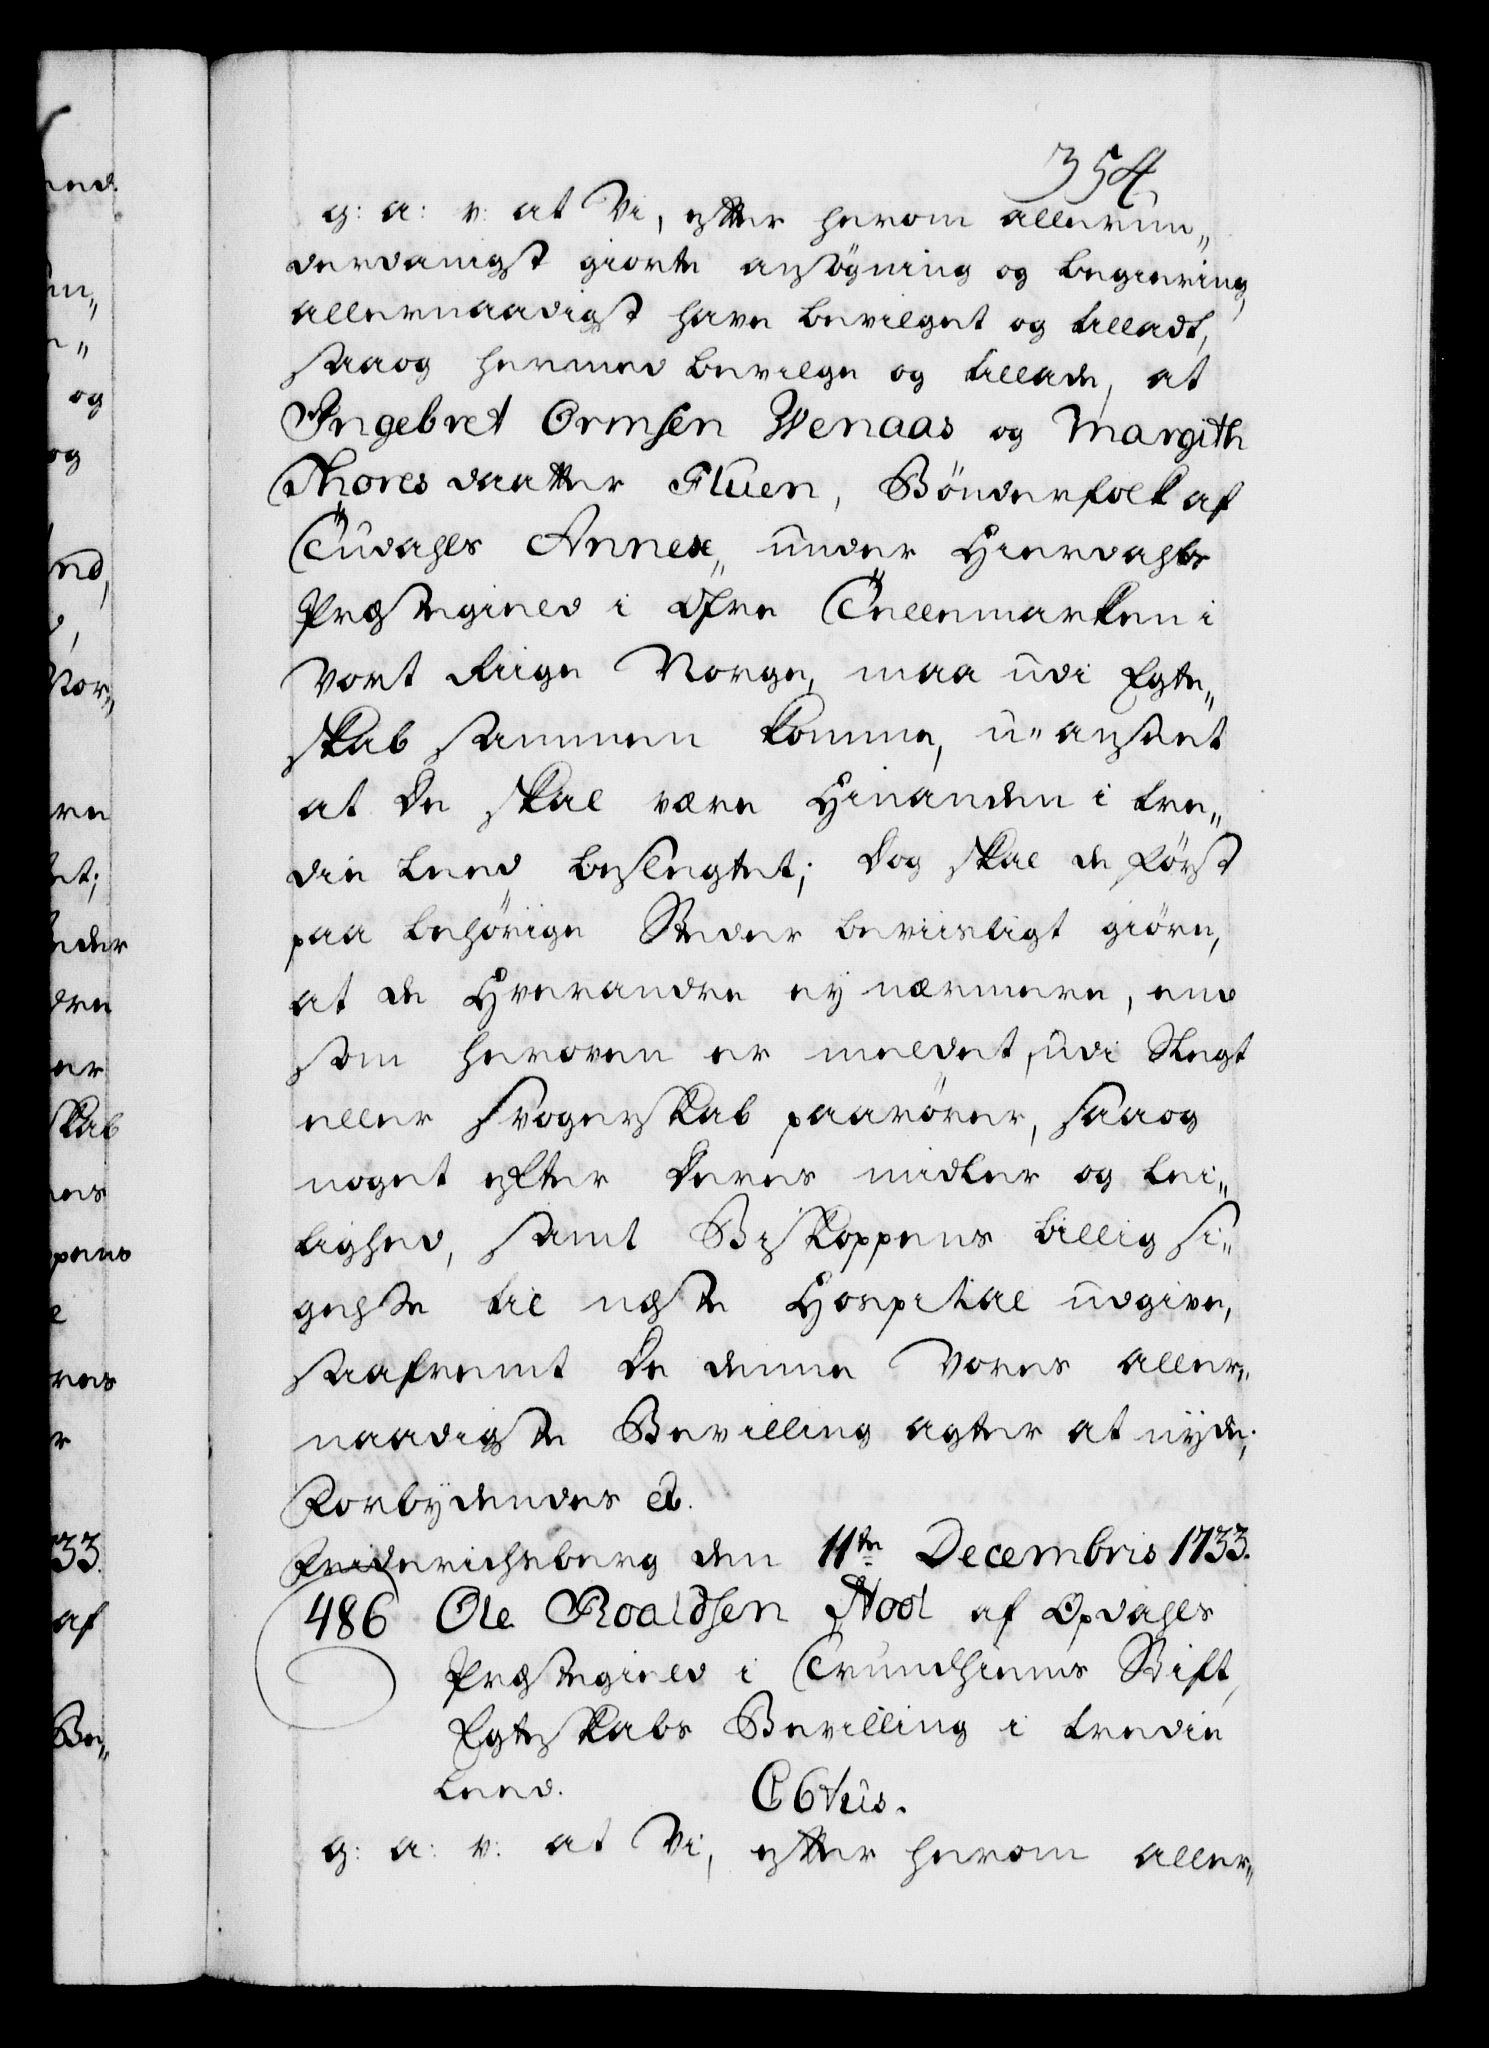 354
g: a: v: at Vi, efter herom allerun„
derdanigst giorte ansögning og begiering,
allernaadigst have bevilget og tilladt,
saaog hermed bevilge og tillade, at
Ingebret Ormsen Wenaas og Margith
Thores daatter Fluen, Bönderfolk af
Tudahls Annex, under Hierdahls
Præstegield i Öfre Tellemarken i
vort Riige Norge, maa udi Egte„
skab sammen komme, u-anseet
at de skal være Hinanden i tre„
die Leed beslegtet; dog skal de först
paa behörige Steder beviisligt giöre,
at de Hverandre ey nærmere, end
som heroven er meldet, udi Slegt
eller Svogerskab paarörer, saaog
noget efter deres midler og lei„
lighed, samt Biskoppens billig si„
gelse til neste Hospital udgive,
saafremt de denne Vores aller„
naadigste Bevilling agter at nyde;
Forbydendes et.
Friderichsberg den 11te Decembris 1733.
486 Ole Roaldsen Stool af Opdahls
Præstegield i Trundhiems Stift,
Egteskabs Bevilling i tredie
Leed. C 6tus.
g: a: v: at Vi, efter herom aller„